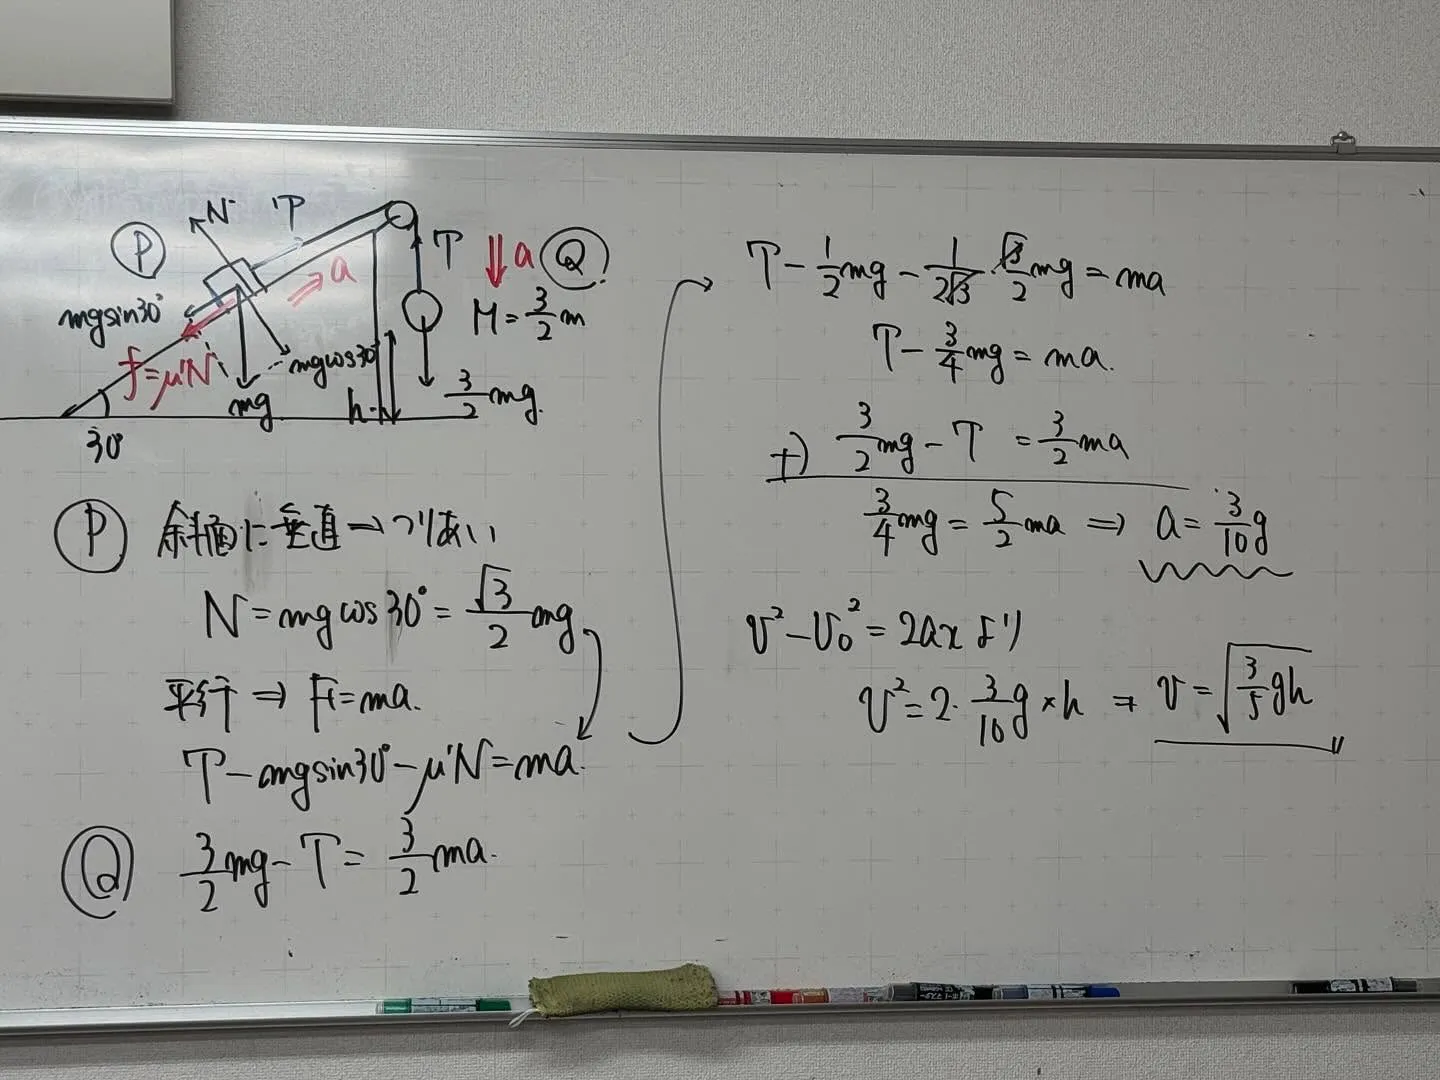 P
N
T
T
a
Q
a
mg sin30°
M = 3/2 m
f=μ'N
mg cos30°
mg
3/2 mg.
h
30°
P 斜面に垂直→つりあい
N = mg cos 30° = √3/2 mg
平行 ⇒ F=ma.
T − mg sin30° − μ'N = ma.
Q 3/2 mg − T = 3/2 ma.
T − 1/2 mg − 1/2√3 · √3/2 mg = ma
T − 3/4 mg = ma.
+) 3/2 mg − T = 3/2 ma
3/4 mg = 5/2 ma ⇒ a = 3/10 g
v² − v₀² = 2ax より
v² = 2 · 3/10 g × h ⇒ v = √(3/5 gh)